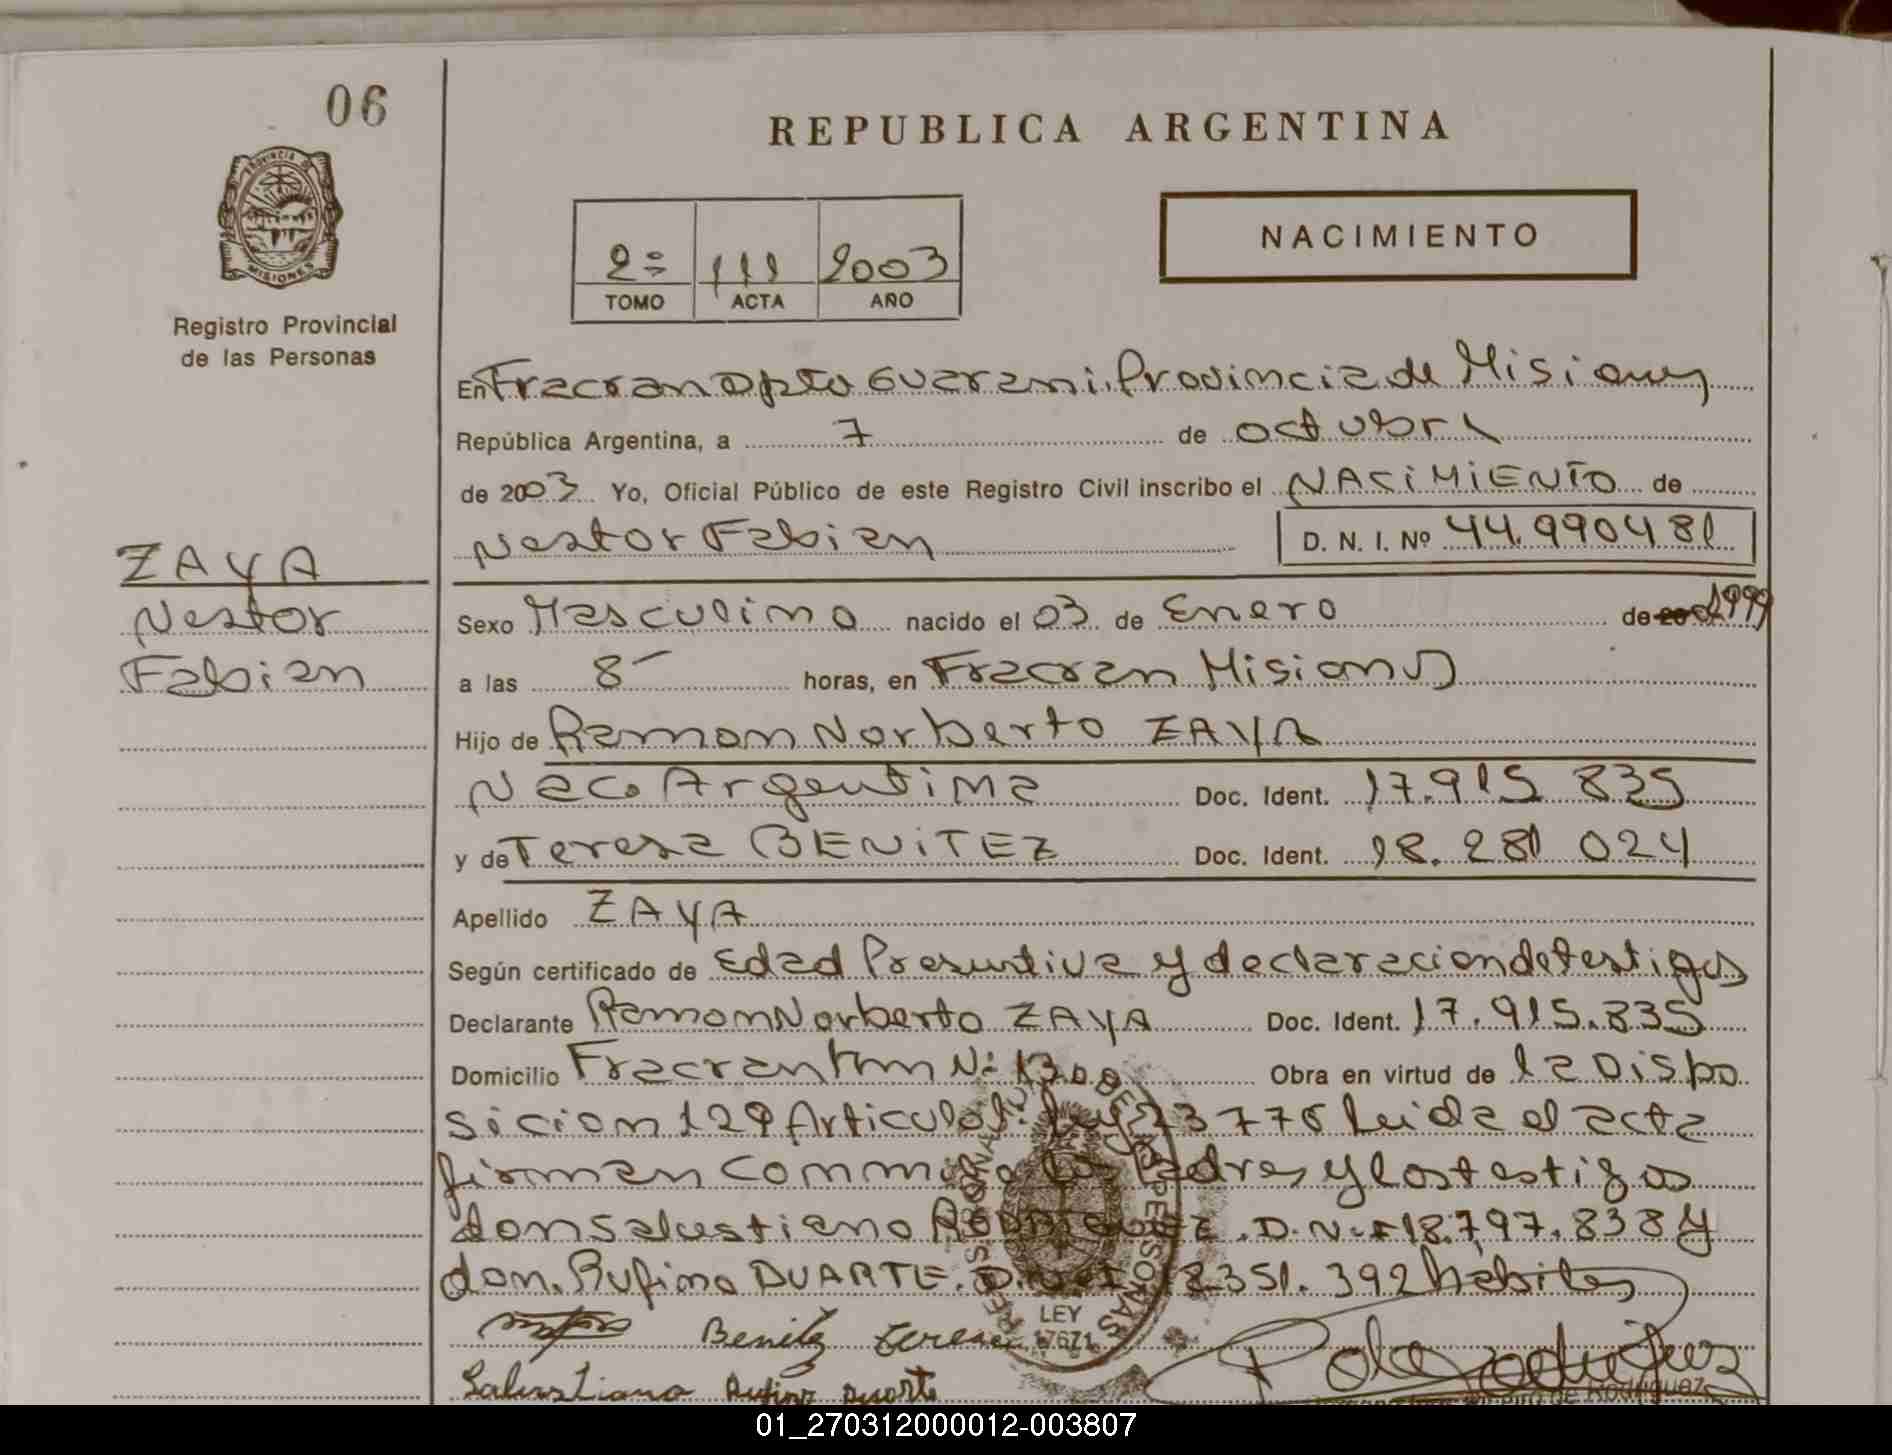 06
REPUBLICA ARGENTINA
PROVINCIA DE
MISIONES
Registro Provincial
de las Personas
2º 111 2003
TOMO ACTA AÑO
NACIMIENTO
En Fracran Dpto Guarani. Provincia de Misiones
República Argentina, a 7 de octubre
de 2003 Yo, Oficial Público de este Registro Civil inscribo el NACIMIENTO de
Nestor Fabian D. N. I. Nº 44.990481
ZAYA
Nestor
Fabian
Sexo Masculino nacido el 03 de Enero de 1999
a las 8 horas, en Fracran Misiones
Hijo de Ramon Norberto ZAYA
Nac. Argentina Doc. Ident. 17.915 835
y de Teresa BENITEZ Doc. Ident. 18. 281 024
Apellido ZAYA
Según certificado de Edad Presuntiva y declaracion de testigos
Declarante Ramon Norberto ZAYA Doc. Ident. 17.915.835
Domicilio Fracran Km Nº 1300 Obra en virtud de la Dispo
sicion 129 Articulo 1º Ley 23776 Leida el acta
firman conmigo los padres y los testigos
don Salustiano RODRIGUEZ. D.N.I 18.797.838 y
don. Rufino DUARTE. D.N.I 12351.392 habiles
LEY
17671
Benitez Teresa
Salustiano Rufino Duarte
01_270312000012-003807